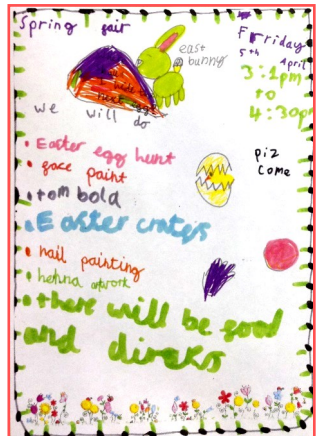 Spring fair
Frriday
5th April
3:1pm
to
4:30pm
east
bunny
we will do
piz
come
• Easter egg hunt
• face paint
• tom bola
• Easter craters
• nail painting
• henna artwork
• there will be food
and dircks